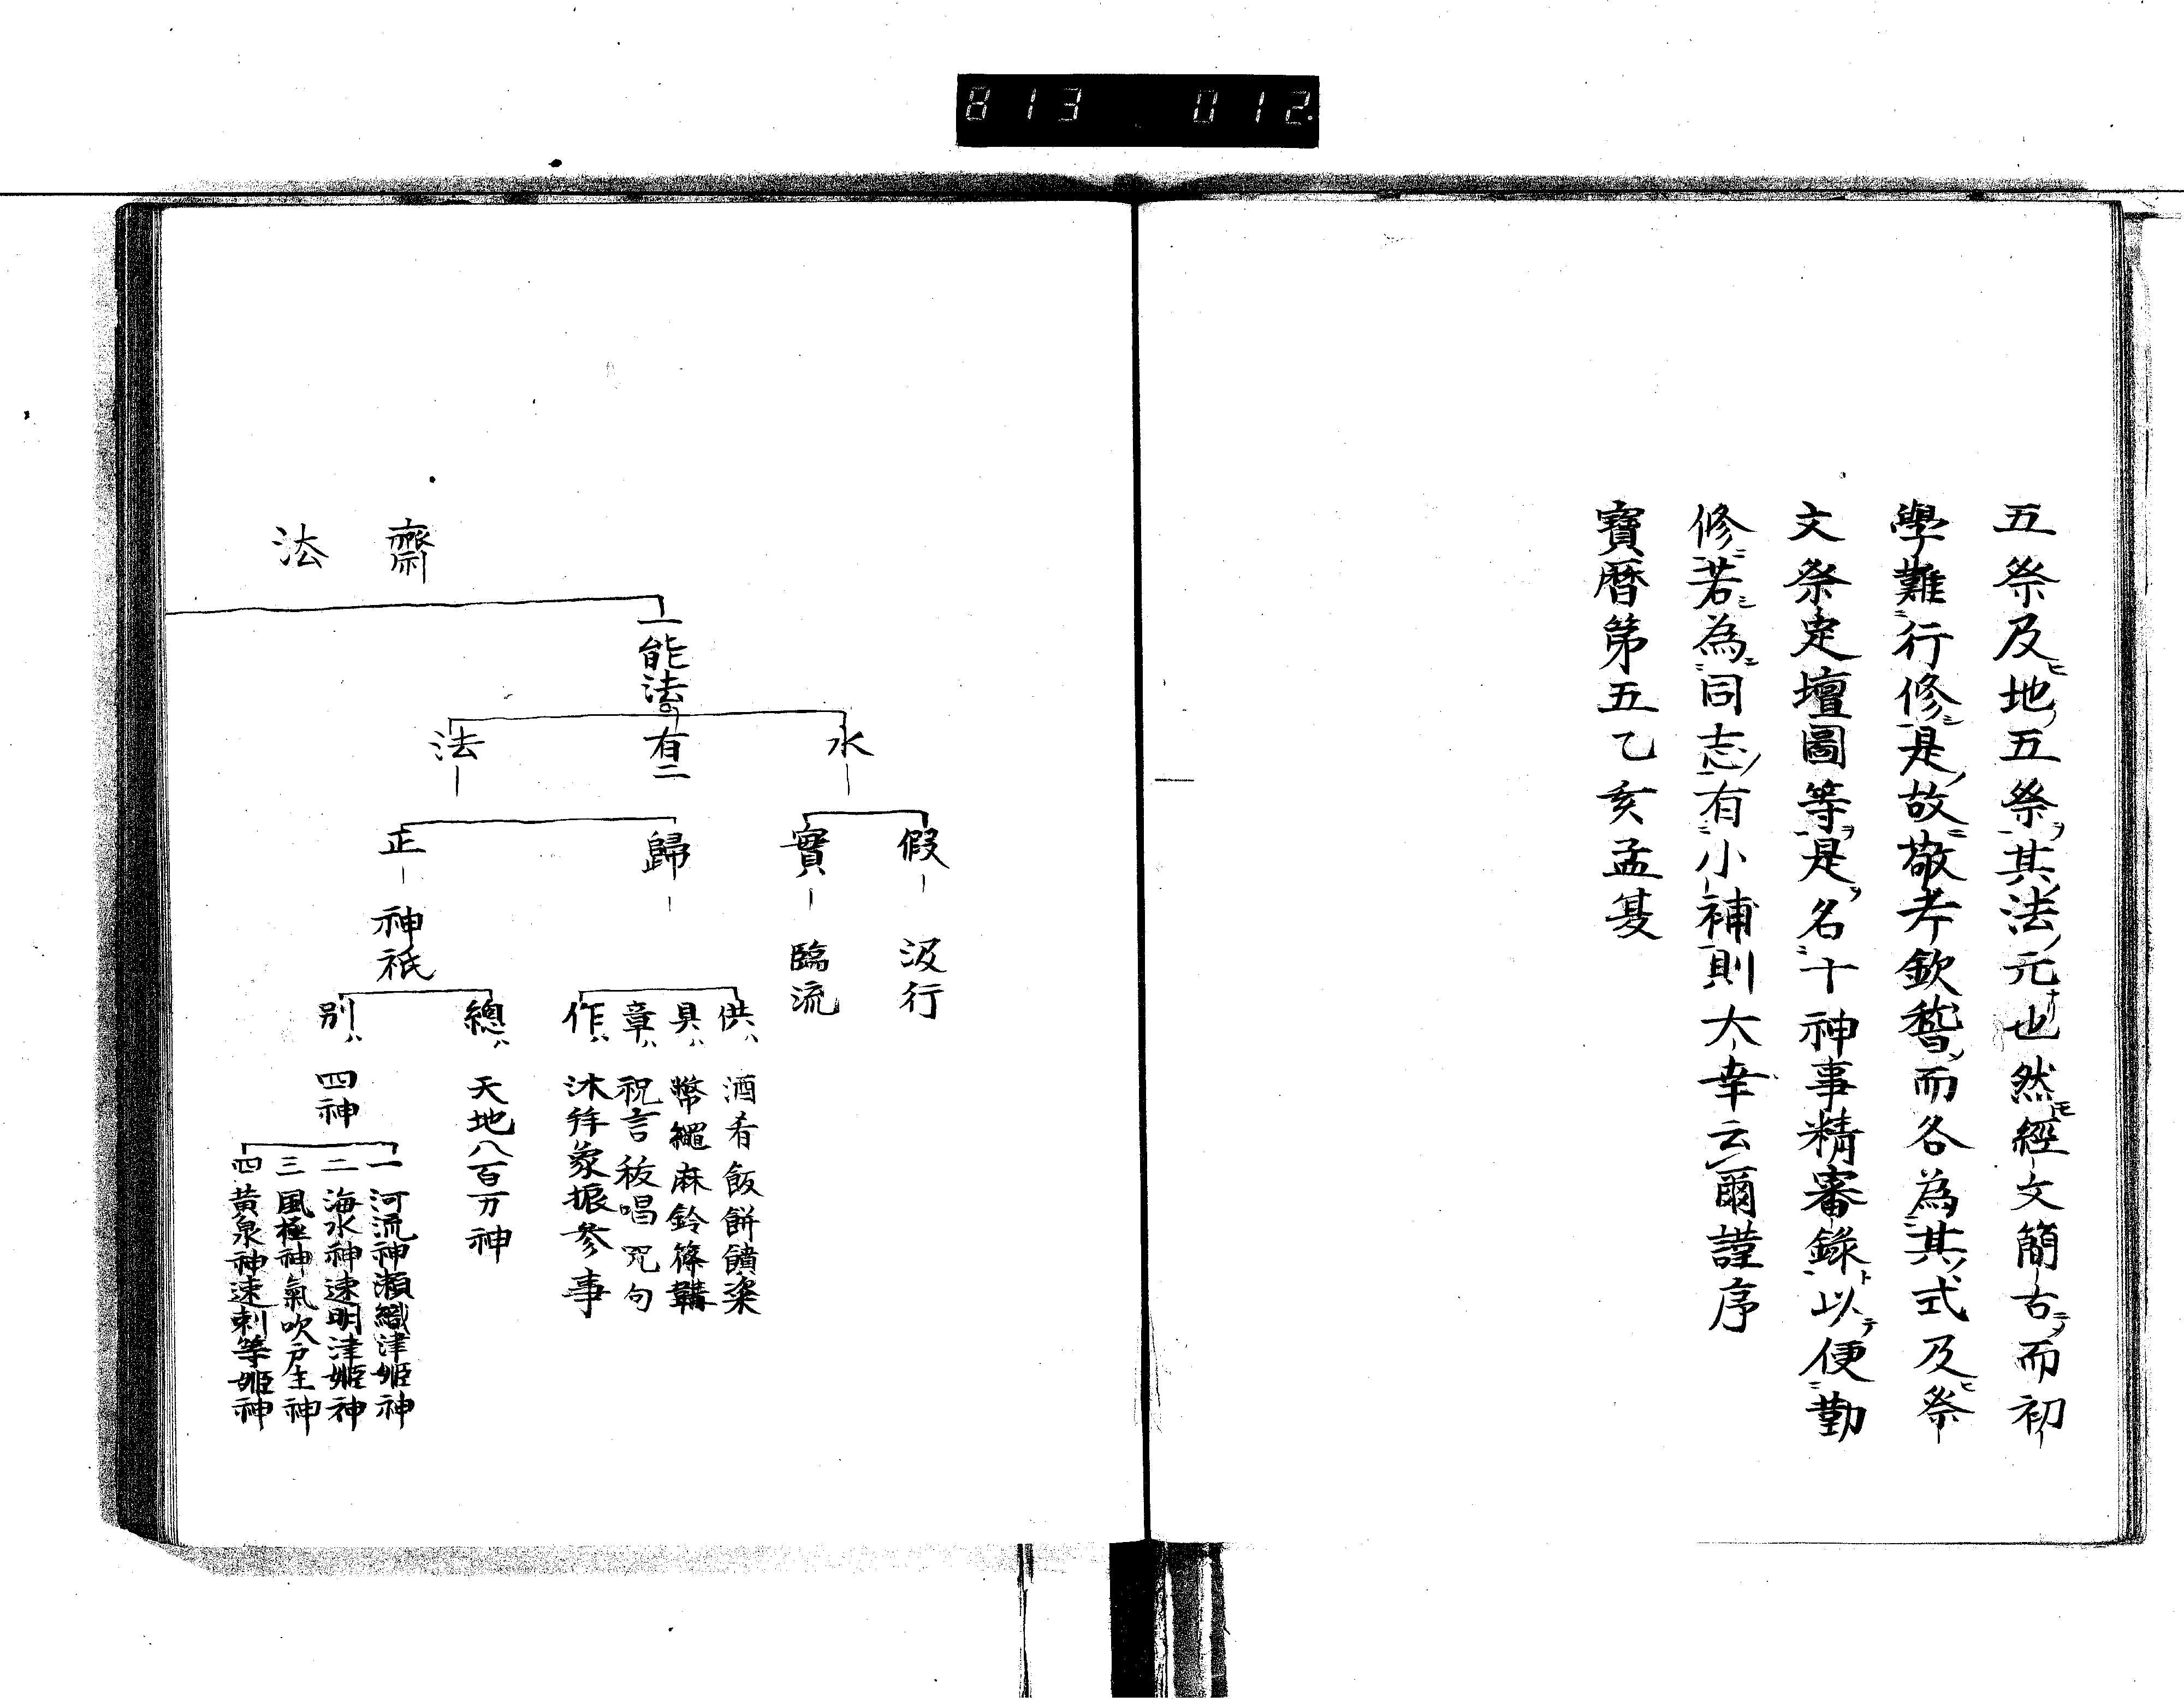 813 012
五祭及地五祭其法元也然經文簡古而初
學難行修是故敬考欽稽而各為其式及祭
文祭定壇圖等是名十神事精審錄以便勤
修若為同志有小補則大幸云爾謹序
寶曆第五乙亥孟夏
齋法
一能法有二
水
假 汲行
實 臨流
法
歸
供ハ 酒肴飯餅饙粢
具ハ 幣繩麻鈴篠韝
章ハ 祝言祓唱咒句
作ハ 沐拜象振參事
正 神祇
總ハ 天地八百万神
別ハ 四神
一 河流神瀬織津姬神
二 海水神速明津姬神
三 風極神氣吹戶主神
四 黃泉神速刺等姬神